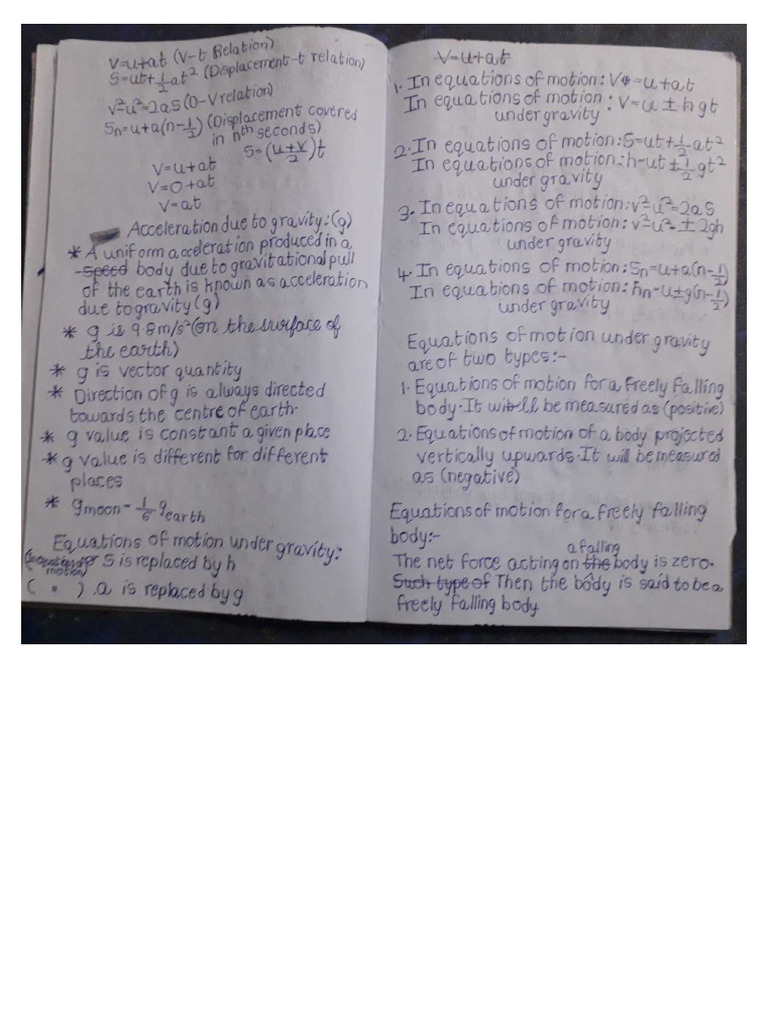 V=u+at (V-t Relation)
S=ut+1/2at² (Displacement-t relation)
v²-u²=2as (D-V relation)
Sn=u+a(n-1/2) (Displacement covered
in nth seconds)
S=(u+v/2)t
V=u+at
V=0+at
V=at
Acceleration due to gravity:(g)
* A uniform acceleration produced in a
speed body due to gravitational pull
of the earth is known as acceleration
due to gravity (g)
* g is 9.8m/s² (on the surface of
the earth)
* g is vector quantity
* Direction of g is always directed
towards the centre of earth.
* g value is constant a given place
* g value is different for different
places
* gmoon = 1/6 gearth
Equations of motion under gravity:
motion) S is replaced by h
( " ) .a is replaced by g
V=u+at
1. In equations of motion: V=u+at
In equations of motion : V=u±hgt
under gravity
2. In equations of motion: S=ut+1/2at²
In equations of motion:- h=ut±1/2gt²
under gravity
3. In equations of motion: v²-u²=2as
In equations of motion: v²-u²=±2gh
under gravity
4. In equations of motion: Sn=u+a(n-1/2)
In equations of motion: hn=u±g(n-1/2)
under gravity
Equations of motion under gravity
are of two types:-
1. Equations of motion for a freely falling
body. It will be measured as (positive)
2. Equations of motion of a body projected
vertically upwards. It will be measured
as (negative)
Equations of motion for a freely falling
body:-
a falling
The net force acting on the body is zero.
Such type of Then the body is said to be a
freely falling body